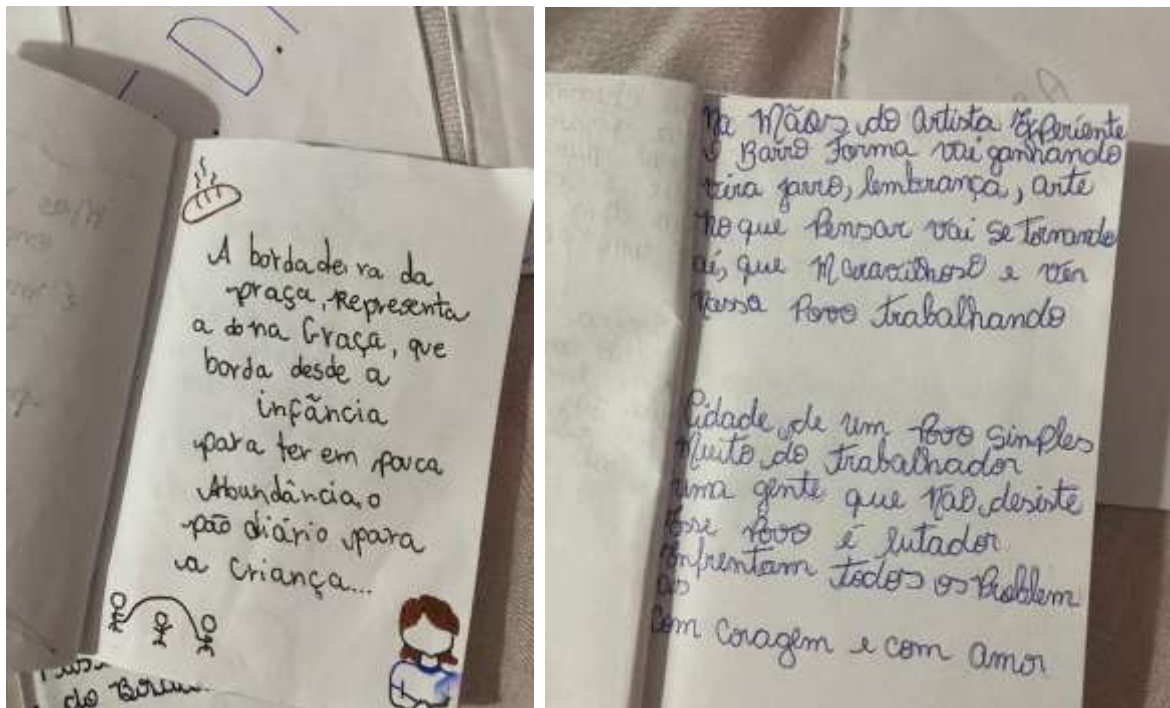 A bordadeira da
praça, Representa
a dona Graça, que
borda desde a
infância
para ter em pouca
Abundância, o
pão diário para
a criança...
do
Na Mãos do artista Experiente
o Barro Forma vai ganhando
vira jarro, lembrança, arte
no que Pensar vai se tornando
ai, que Maravilhoso e ver
nossa Povo Trabalhando
Cidade de um Povo simples
Muito do trabalhador
uma gente que não desiste
Esse Povo é lutador
Enfrentam todos os Problem
as
Com coragem e com amor